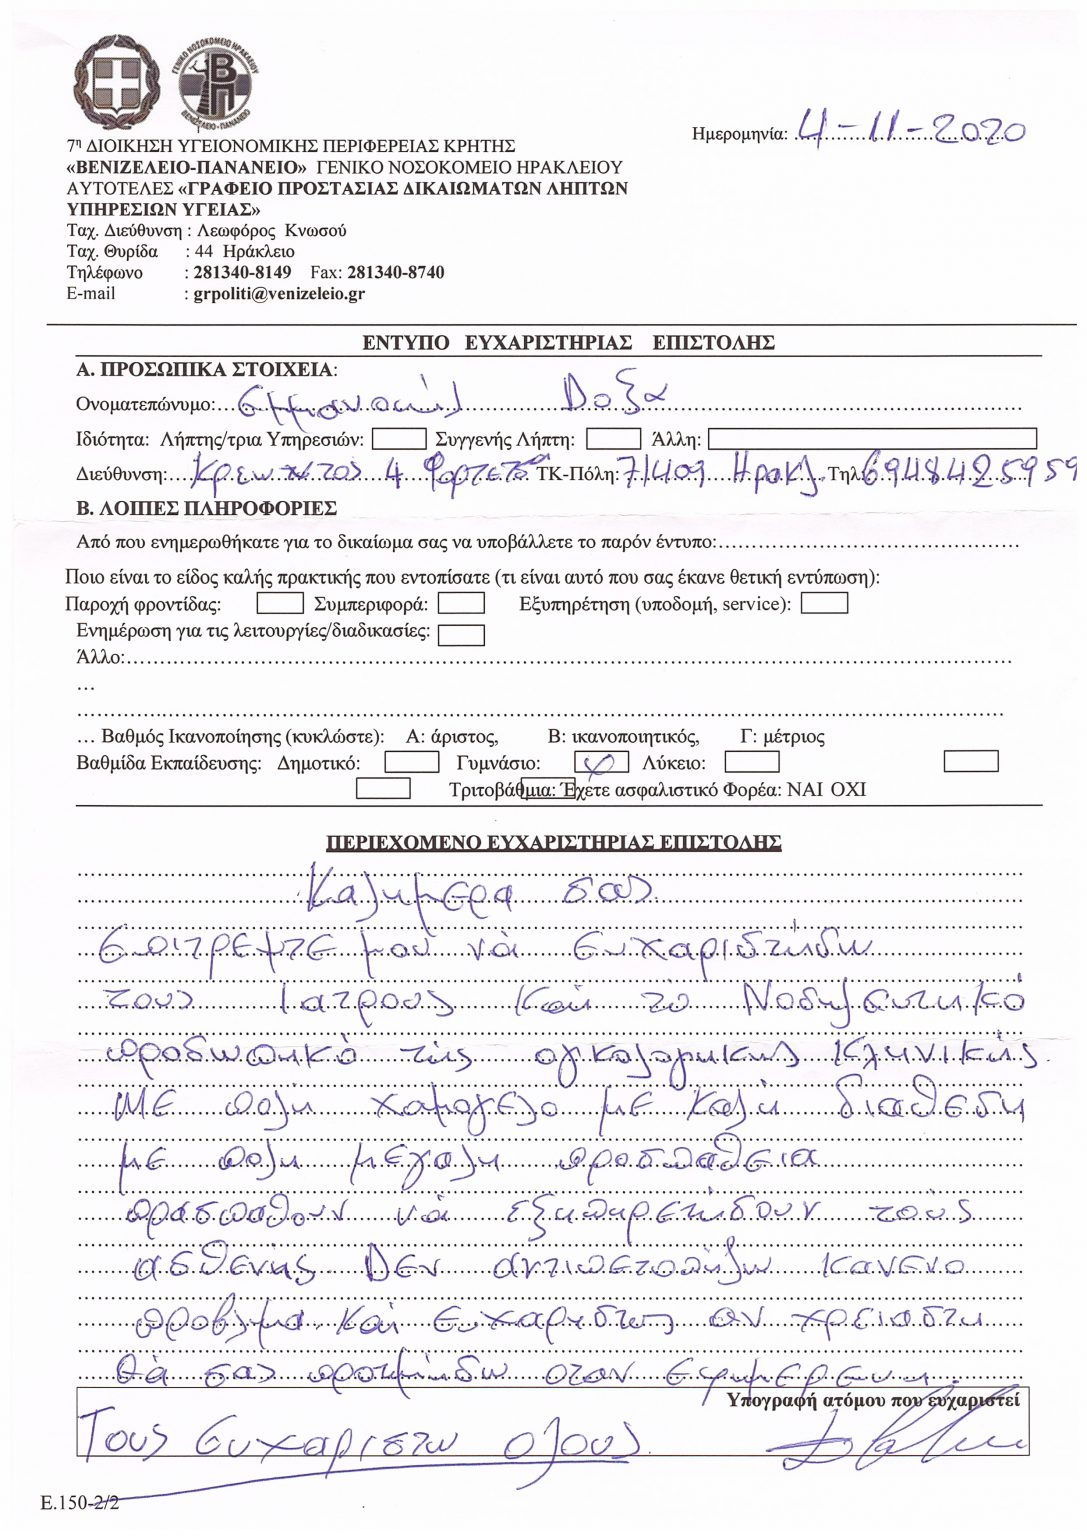 ΓΕΝΙΚΟ ΝΟΣΟΚΟΜΕΙΟ ΗΡΑΚΛΕΙΟΥ
ΒΠ
ΒΕΝΙΖΕΛΕΙΟ-ΠΑΝΑΝΕΙΟ
Ημερομηνία: 4-11-2020
7η ΔΙΟΙΚΗΣΗ ΥΓΕΙΟΝΟΜΙΚΗΣ ΠΕΡΙΦΕΡΕΙΑΣ ΚΡΗΤΗΣ
«ΒΕΝΙΖΕΛΕΙΟ-ΠΑΝΑΝΕΙΟ» ΓΕΝΙΚΟ ΝΟΣΟΚΟΜΕΙΟ ΗΡΑΚΛΕΙΟΥ
ΑΥΤΟΤΕΛΕΣ «ΓΡΑΦΕΙΟ ΠΡΟΣΤΑΣΙΑΣ ΔΙΚΑΙΩΜΑΤΩΝ ΛΗΠΤΩΝ
ΥΠΗΡΕΣΙΩΝ ΥΓΕΙΑΣ»
Ταχ. Διεύθυνση : Λεωφόρος Κνωσού
Ταχ. Θυρίδα : 44 Ηράκλειο
Τηλέφωνο : 281340-8149 Fax: 281340-8740
E-mail : grpoliti@venizeleio.gr
ΕΝΤΥΠΟ ΕΥΧΑΡΙΣΤΗΡΙΑΣ ΕΠΙΣΤΟΛΗΣ
Α. ΠΡΟΣΩΠΙΚΑ ΣΤΟΙΧΕΙΑ:
Ονοματεπώνυμο: Δοξα
Ιδιότητα: Λήπτης/τρια Υπηρεσιών: Συγγενής Λήπτη: Άλλη:
Διεύθυνση: 4 ΤΚ-Πόλη: 71409 Ηρακλ. Τηλ 6948425959
Β. ΛΟΙΠΕΣ ΠΛΗΡΟΦΟΡΙΕΣ
Από που ενημερωθήκατε για το δικαίωμα σας να υποβάλλετε το παρόν έντυπο:
Ποιο είναι το είδος καλής πρακτικής που εντοπίσατε (τι είναι αυτό που σας έκανε θετική εντύπωση):
Παροχή φροντίδας: Συμπεριφορά: Εξυπηρέτηση (υποδομή, service):
Ενημέρωση για τις λειτουργίες/διαδικασίες:
Άλλο:
…
… Βαθμός Ικανοποίησης (κυκλώστε): Α: άριστος, Β: ικανοποιητικός, Γ: μέτριος
Βαθμίδα Εκπαίδευσης: Δημοτικό: Γυμνάσιο: Λύκειο:
Τριτοβάθμια: Έχετε ασφαλιστικό Φορέα: ΝΑΙ ΟΧΙ
ΠΕΡΙΕΧΟΜΕΝΟ ΕΥΧΑΡΙΣΤΗΡΙΑΣ ΕΠΙΣΤΟΛΗΣ
Καλημερα σας
Επιτρεψτε μου νά ευχαριστήσω
τους Ιατρους και το Νοσηλευτικό
προσωπικό τής ογκολογικης Κλινικής
ΜΕ πολη χαμογελο με καλή διαθεση
με πολη μεγαλη προσπαθεια
πρασπαθουν νά εξηπηρετήσουν τούς
ασθενής Δεν αντιπετοπήζω κανενα
προβλημα και ευχαριστως αν χρειαστη
θά σας προτμήσω οταν εφημερευη.
Υπογραφή ατόμου που ευχαριστεί
Τους ευχαριστω ολους
Ε.150-2/2